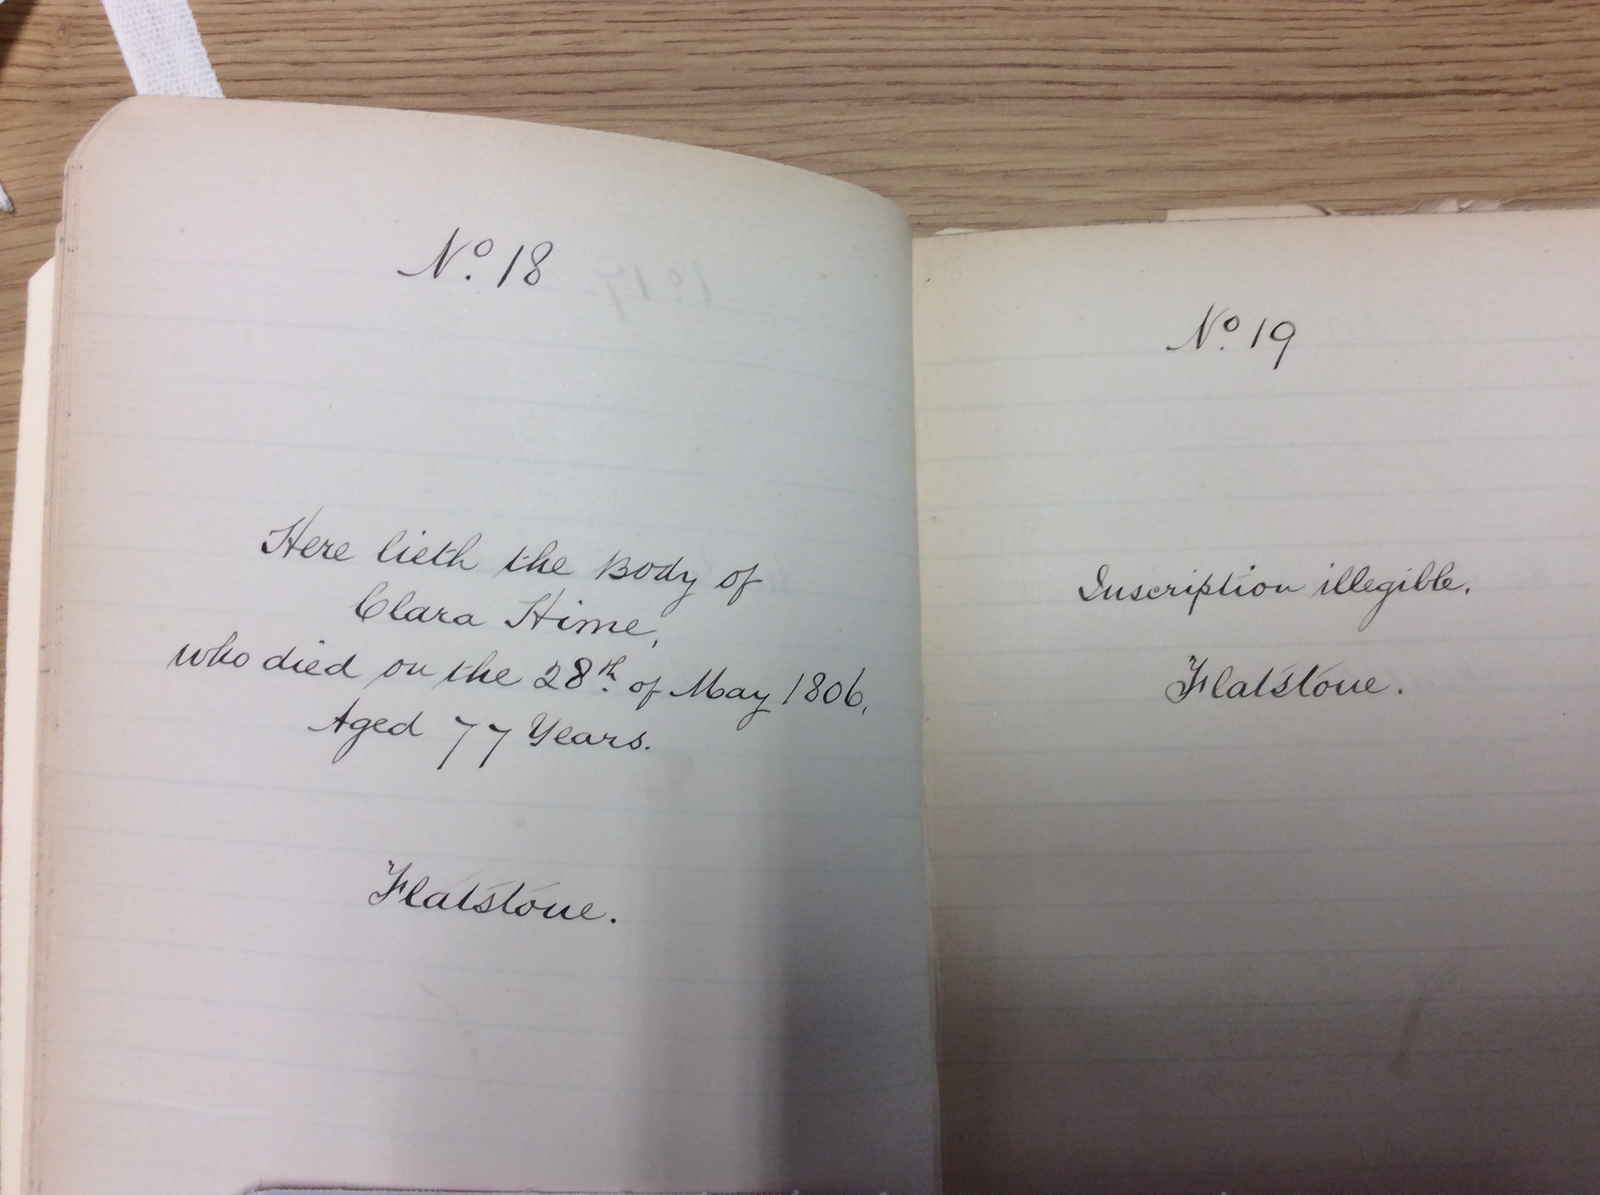 No. 18
Here lieth the Body of
Clara Hime,
who died on the 28th. of May 1806,
Aged 77 Years.
Flatstone.
No. 19
Inscription illegible.
Flatstone.